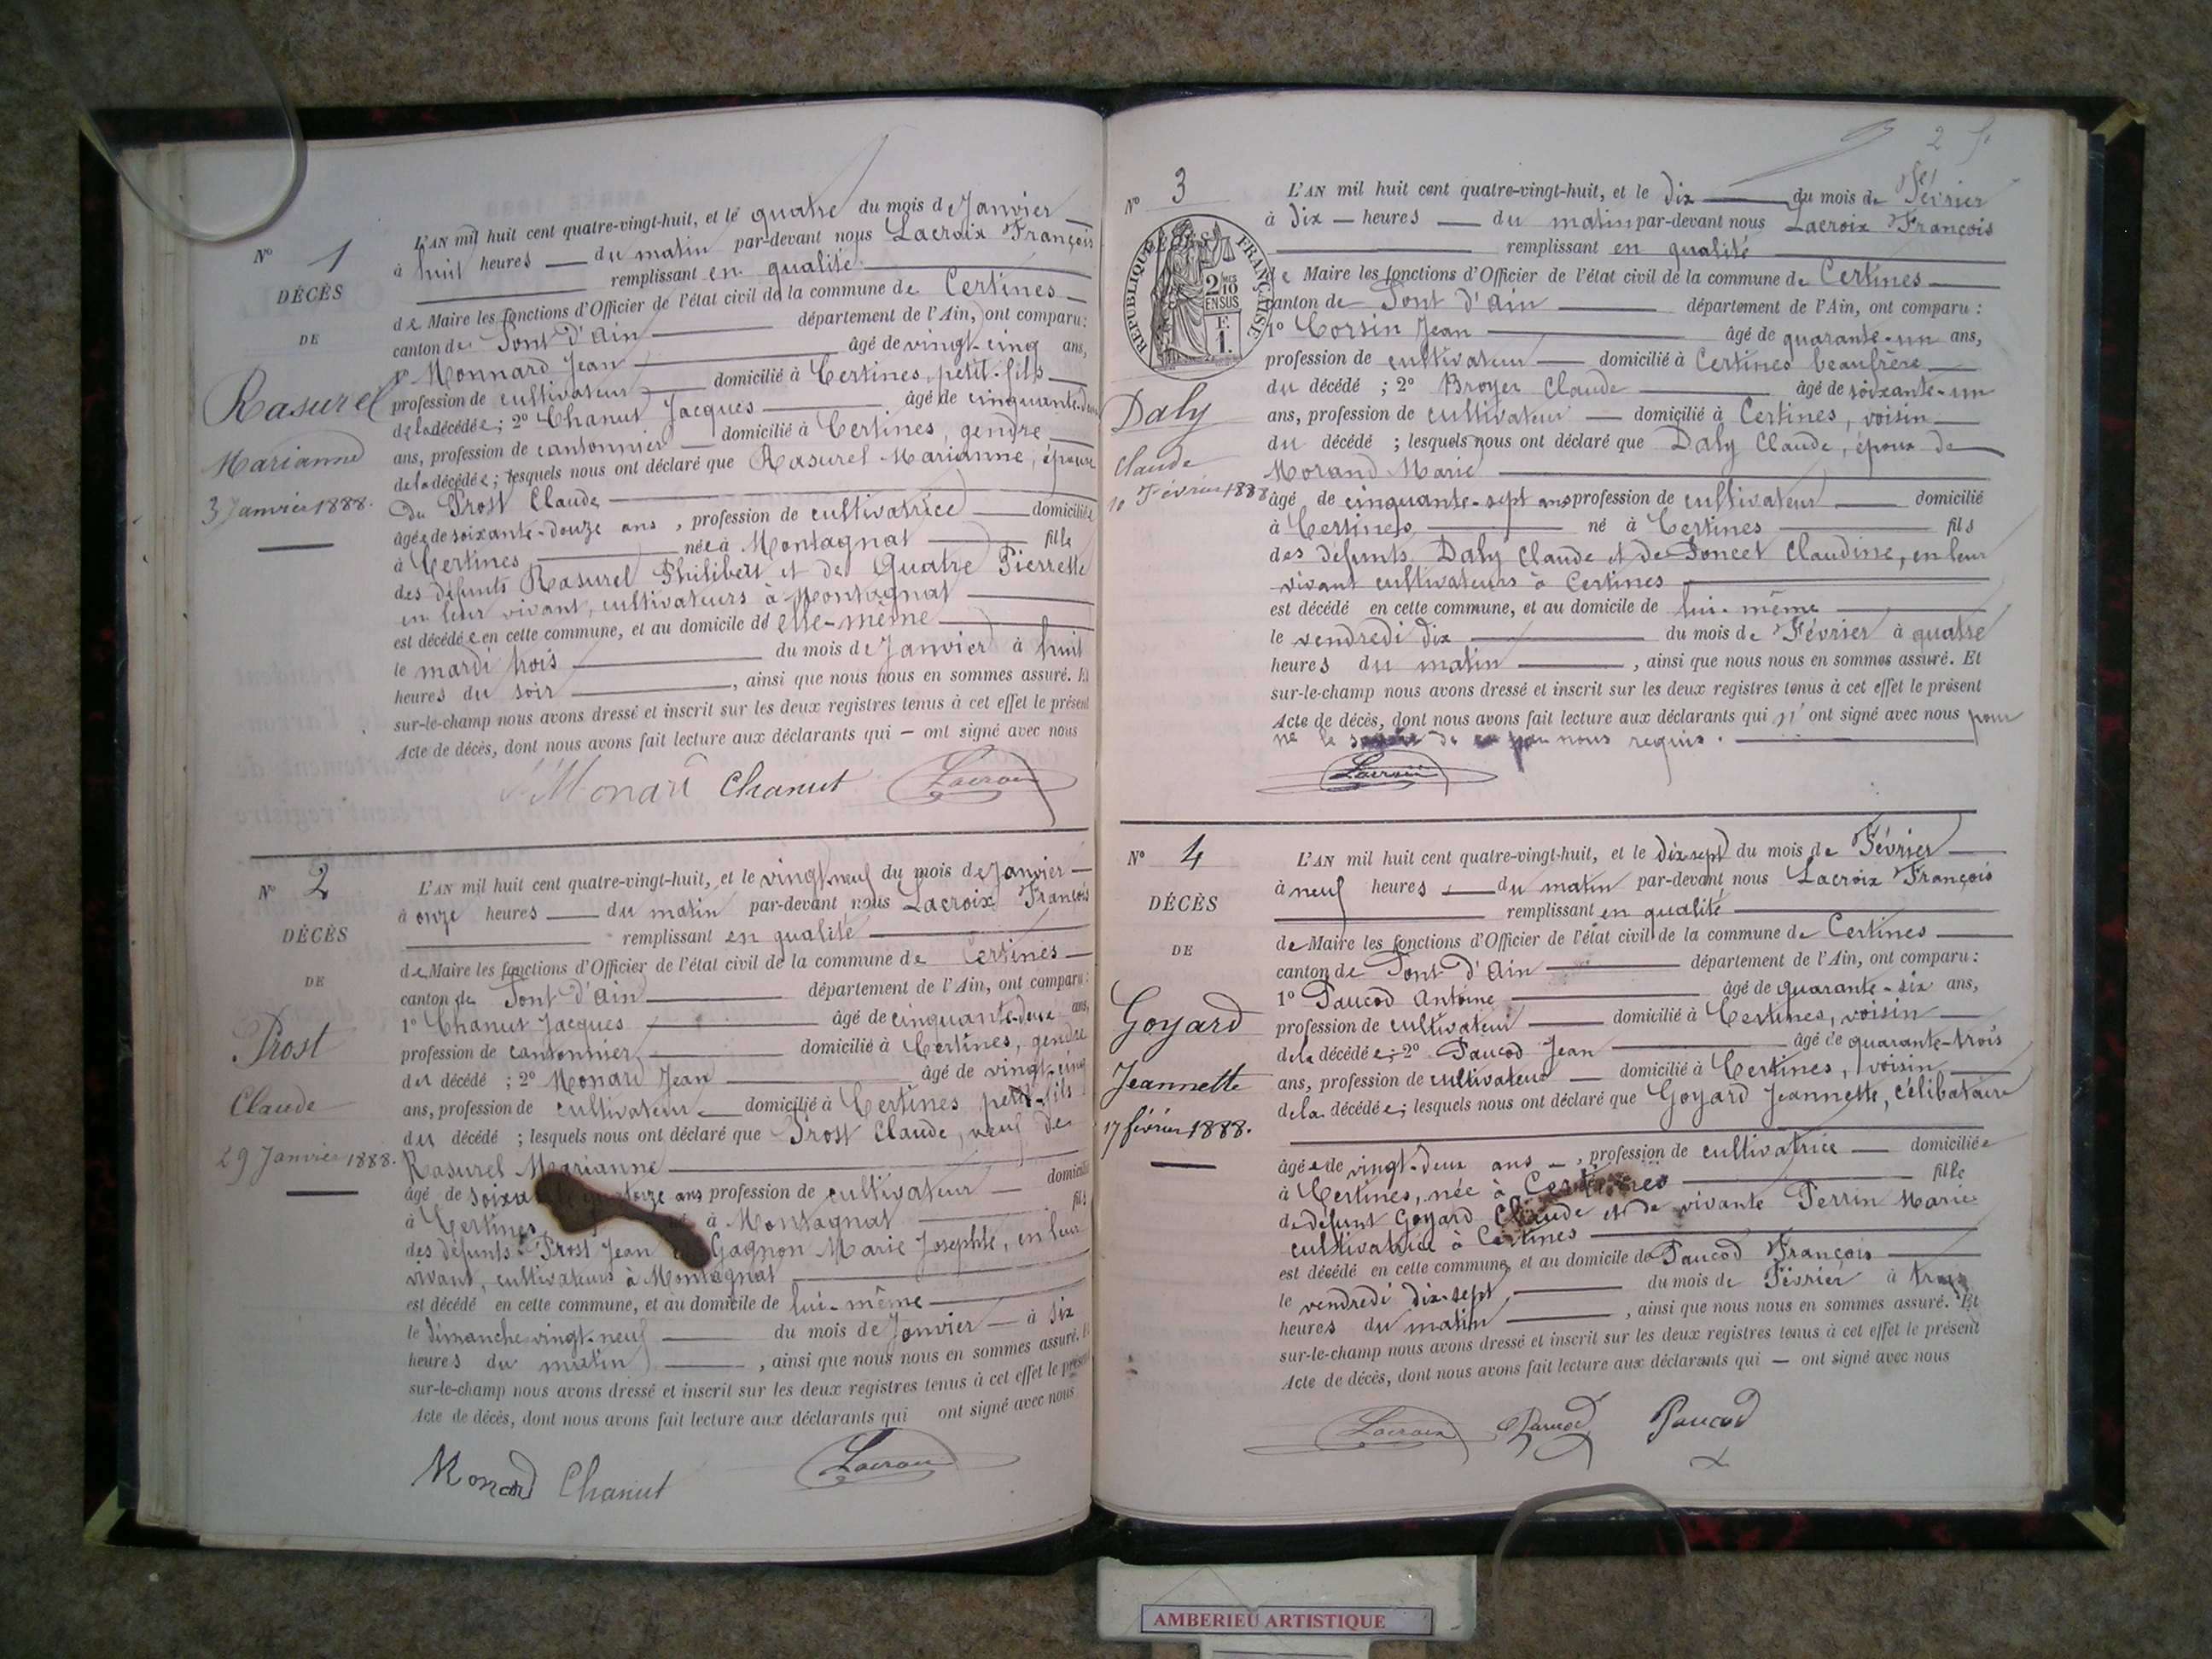 N° 1
DÉCÈS
DE
Rasurel
Marianne
3 Janvier 1888.
L'AN mil huit cent quatre-vingt-huit, et le quatre du mois de Janvier
à huit heures du matin par-devant nous Lacroix François
remplissant en qualité
de Maire les fonctions d'Officier de l'état civil de la commune de Certines
canton de Pont d'Ain département de l'Ain, ont comparu:
1° Monnard Jean âgé de vingt-cinq ans,
profession de cultivateur domicilié à Certines, petit-fils
de la décédée; 2° Chanut Jacques âgé de cinquante-deux
ans, profession de cantonnier domicilié à Certines, gendre
de la décédée; lesquels nous ont déclaré que Rasurel Marianne, épouse
du Prost Claude
âgée de soixante-douze ans, profession de cultivatrice domiciliée
à Certines née à Montagnat fille
des défunts Rasurel Philibert et de Quatre Pierrette
en leur vivant, cultivateurs à Montagnat
est décédée en cette commune, et au domicile de elle-même
le mardi trois du mois de Janvier à huit
heures du soir, ainsi que nous nous en sommes assuré. Et
sur-le-champ nous avons dressé et inscrit sur les deux registres tenus à cet effet le présent
Acte de décès, dont nous avons fait lecture aux déclarants qui — ont signé avec nous
Monard Chanut Lacroix
N° 2
DÉCÈS
DE
Prost
Claude
29 Janvier 1888.
L'AN mil huit cent quatre-vingt-huit, et le vingt-neuf du mois de Janvier
à onze heures du matin par-devant nous Lacroix François
remplissant en qualité
de Maire les fonctions d'Officier de l'état civil de la commune de Certines
canton de Pont d'Ain département de l'Ain, ont comparu:
1° Chanut Jacques âgé de cinquante-deux ans,
profession de cantonnier domicilié à Certines, gendre
du décédé ; 2° Monard Jean âgé de vingt-cinq
ans, profession de cultivateur domicilié à Certines petit-fils
du décédé ; lesquels nous ont déclaré que Prost Claude, veuf de
Rasurel Marianne
âgé de quatorze ans profession de cultivateur domicilié
à Certines à Montagnat fils
des défunts Prost Jean Gagnon Marie Josephte, en leur
vivant, cultivateurs à Montagnat
est décédé en cette commune, et au domicile de lui-même
le dimanche vingt-neuf du mois de Janvier à six
heures du matin, ainsi que nous nous en sommes assuré. Et
sur-le-champ nous avons dressé et inscrit sur les deux registres tenus à cet effet le présent
Acte de décès, dont nous avons fait lecture aux déclarants qui ont signé avec nous
Monard Chanut Lacroix
2
N° 3
RÉPUBLIQUE FRANÇAISE
2/10 EN SUS
F. 1.
Daly
Claude
10 Février 1888
L'AN mil huit cent quatre-vingt-huit, et le dix du mois de Février
à dix heures du matin par-devant nous Lacroix François
remplissant en qualité
de Maire les fonctions d'Officier de l'état civil de la commune de Certines
canton de Pont d'Ain département de l'Ain, ont comparu :
1° Corsin Jean âgé de quarante-un ans,
profession de cultivateur domicilié à Certines beaufrère
du décédé ; 2° Broyer Claude âgé de soixante-un
ans, profession de cultivateur domicilié à Certines, voisin
du décédé ; lesquels nous ont déclaré que Daly Claude, époux de
Morand Marie
âgé de cinquante-sept ans profession de cultivateur domicilié
à Certines né à Certines fils
des défunts Daly Claude et de Poncet Claudine, en leur
vivant cultivateurs à Certines
est décédé en cette commune, et au domicile de lui-même
le vendredi dix du mois de Février à quatre
heures du matin, ainsi que nous nous en sommes assuré. Et
sur-le-champ nous avons dressé et inscrit sur les deux registres tenus à cet effet le présent
Acte de décès, dont nous avons fait lecture aux déclarants qui n'ont signé avec nous pour
ne le de nous requis.
Lacroix
N° 4
DÉCÈS
DE
Goyard
Jeannette
17 février 1888.
L'AN mil huit cent quatre-vingt-huit, et le dix-sept du mois de Février
à neuf heures du matin par-devant nous Lacroix François
remplissant en qualité
de Maire les fonctions d'Officier de l'état civil de la commune de Certines
canton de Pont d'Ain département de l'Ain, ont comparu :
1° Paucod Antoine âgé de quarante-six ans,
profession de cultivateur domicilié à Certines, voisin
de la décédée; 2° Paucod Jean âgé de quarante-trois
ans, profession de cultivateur domicilié à Certines, voisin
de la décédée; lesquels nous ont déclaré que Goyard Jeannette, célibataire
âgée de vingt-deux ans, profession de cultivatrice domiciliée
à Certines, née à Certines fille
de défunt Goyard Claude et de vivante Perrin Marie
cultivatrice à Certines
est décédé en cette commune, et au domicile de Paucod François
le vendredi dix-sept du mois de Février à trois
heures du matin, ainsi que nous nous en sommes assuré. Et
sur-le-champ nous avons dressé et inscrit sur les deux registres tenus à cet effet le présent
Acte de décès, dont nous avons fait lecture aux déclarants qui — ont signé avec nous
Lacroix Paucod Paucod
AMBERIEU ARTISTIQUE